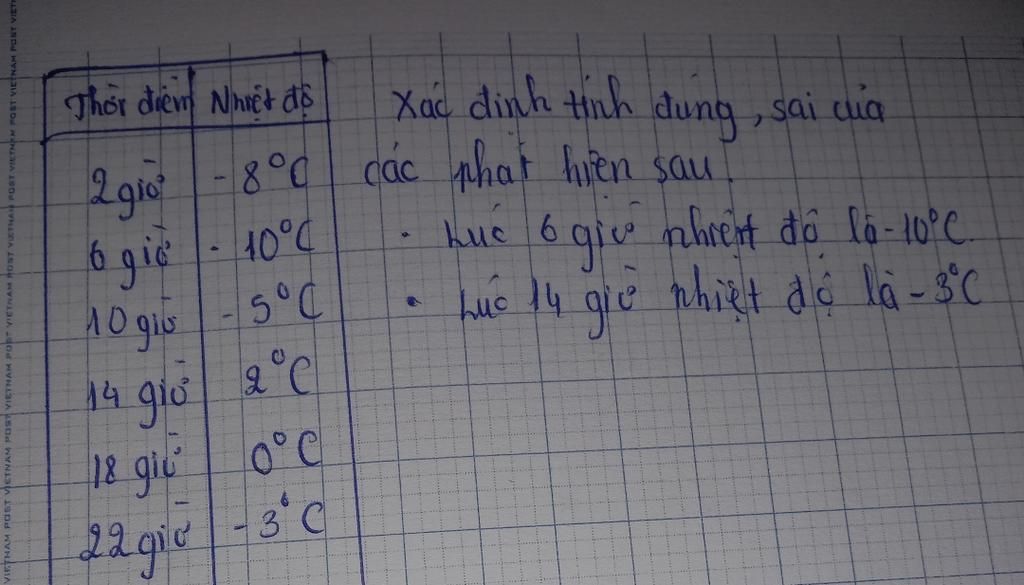 Thời điểm Nhiệt độ
2 giờ - 8°C
6 giờ - 10°C
10 giờ - 5°C
14 giờ 2°C
18 giờ 0°C
22 giờ - 3°C
Xác định tính đúng, sai của
các phát hiện sau.
• Lúc 6 giờ nhiệt độ là -10°C.
• Lúc 14 giờ nhiệt độ là -3°C
VIETNAM POST VIETNAM POST VIETNAM POST VIETNAM POST VIETNAM POST VIETNAM POST